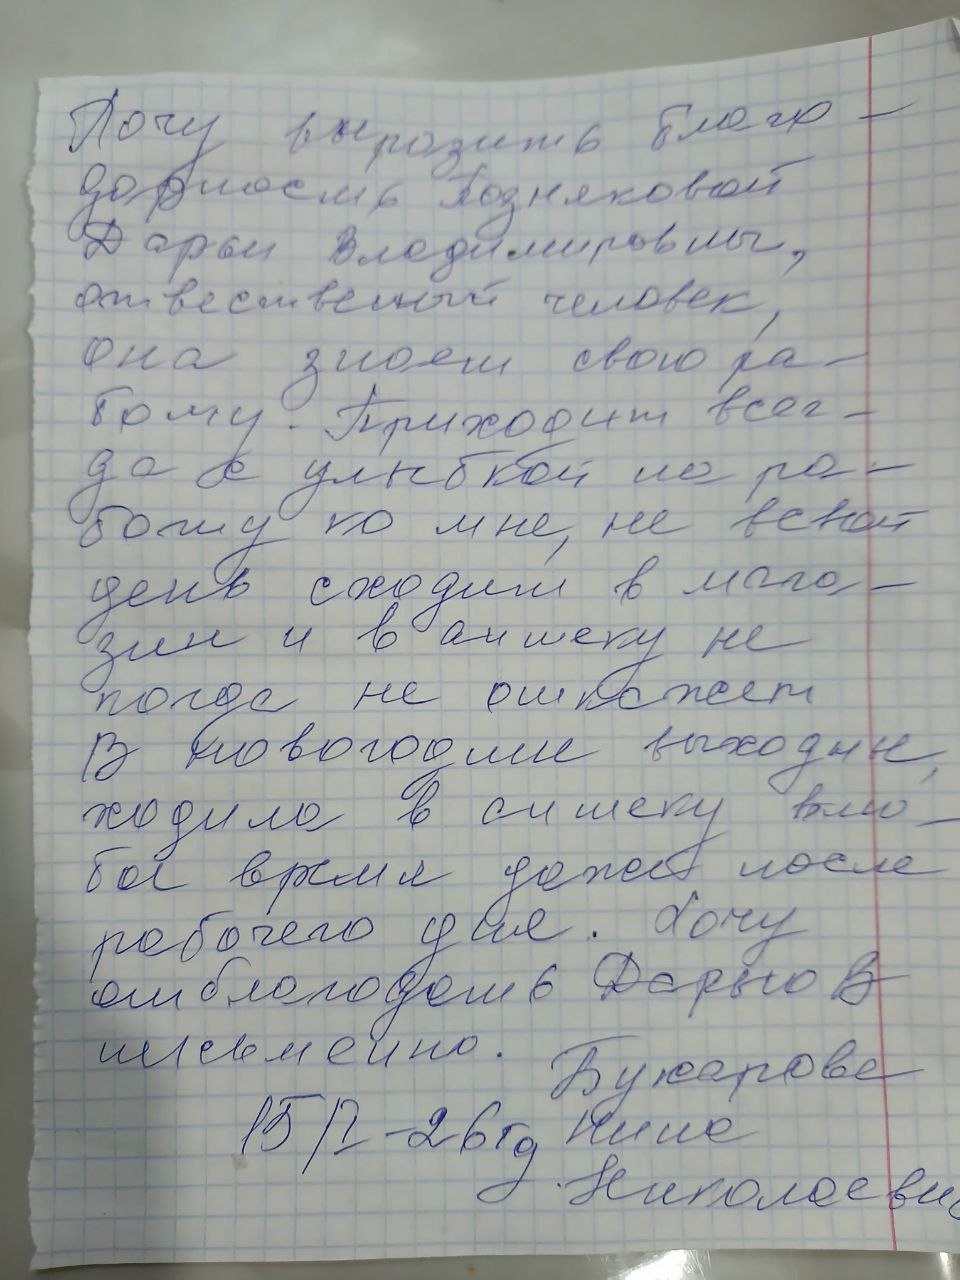 Хочу выразить благо-
дарность Позняковой
Дарьи Владимировны,
отвественный человек,
она знает свою ра-
боту. Приходит всег-
да с улыбкой на ра-
боту ко мне, не всякой
день сходит в мага-
зин и в аптеку не
погда не откажет
В новогодние выходные,
ходила в аптеку влю-
бое время даже после
рабочего дня. Хочу
отблагодать Дарью В
письменно. Бухарова
15/I-26гд Нина
Николаевна